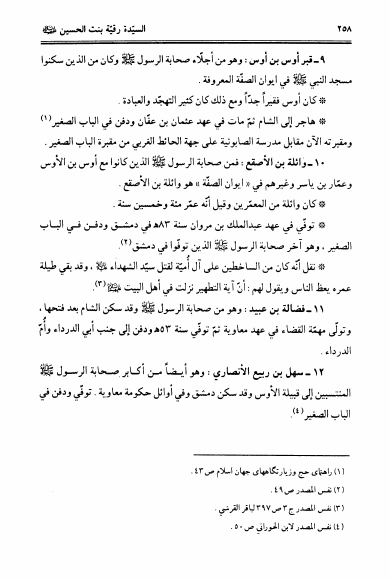 ٢٥٨ السيّدة رقيّة بنت الحسين ﷺ
٩ ـ قبر أوس بن أوس : وهو من أجلّاء صحابة الرسول ﷺ وكان من الذين سكنوا
مسجد النبي ﷺ في ايوان الصفّة المعروفة .
* كان أوس فقيراً جدّاً ومع ذلك كان كثير التهجّد والعبادة .
* هاجر إلى الشام ثمّ مات في عهد عثمان بن عفّان ودفن في الباب الصغير(١)
ومقبرته الآن مقابل مدرسة الصابونية على جهة الحائط الغربي من مقبرة الباب الصغير .
١٠ ـ واثلة بن الأصقع : فمن صحابة الرسول ﷺ الذين كانوا مع أوس بن الأوس
وعمّار بن ياسر وغيرهم في « ايوان الصفّة » هو واثلة بن الأصقع .
* كان واثلة من المعمّرين وقيل أنّه عمّر مئة وخمسين سنة .
* توفّي في عهد عبدالملك بن مروان سنة ٨٣ هـ في دمشق ودفن في الباب
الصغير ، وهو آخر صحابة الرسول ﷺ الذين توفّوا في دمشق(٢).
* نقل أنّه كان من الساخطين على آل أُميّة لقتل سيّد الشهداء ﷷ ، وقد بقي طيلة
عمره يعظ الناس ويقول لهم : أنّ آية التطهير نزلت في أهل البيت ﷷ(٣).
١١ ـ فضالة بن عبيد : وهو من صحابة الرسول ﷺ وقد سكن الشام بعد فتحها ،
وتولّى مهمّة القضاء في عهد معاوية ثمّ توفّي سنة ٥٣ هـ ودفن إلى جنب أبي الدرداء وأُمّ
الدرداء .
١٢ ـ سهل بن ربيع الأنصاري : وهو أيضاً من أكابر صحابة الرسول ﷺ
المنتسبين إلى قبيلة الأوس وقد سكن دمشق وفي أوائل حكومة معاوية . توفّي ودفن في
الباب الصغير(٤).
(١) راهنماى حج وزيارتگاههاى جهان اسلام ص ٤٣ .
(٢) نفس المصدر ص ٤٩ .
(٣) نفس المصدر ج ٣ ص ٣٩٧ لباقر القرشي .
(٤) نفس المصدر لابن الحوراني ص ٥٠ .